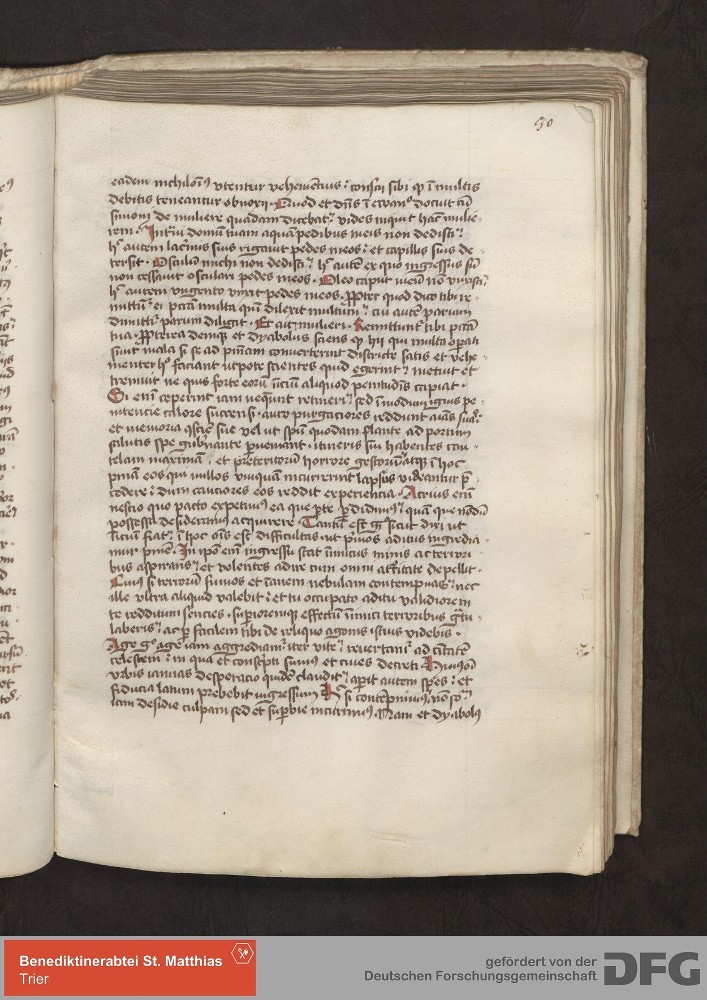 50
eadem nichilomi9 utentur vehementius : conscii sibi qp i multis
debitis teneantur obnoxii . Quod et dns i ewan° docuit cu
simoni de muliere quadam dicebat : vides inquit hanc mulie-
rem . Intui domu tuam aqua pedibus meis non dedisti :
h° autem lacrimis suis rigavit pedes meos : et capillis suis de-
tersit . Osculu michi non dedisti : h° aute ex quo ingressus su
non cessavit osculari pedes meos . Oleo caput meu no unxisti
h° autem ungento unxit pedes meos . Propter quod dico tibi re-
mittu ei pcta multa qm dilexit multum : cui aute parum
dimitti parum diligit . Et ait mulieri . Remittunt tibi pcta
tua . Propterea deniq et dyabolus sciens qp hii qui multa operati
sunt mala si se ad pniam converterint districte satis et vehe-
menter h° faciant utpote scientes quid egerint : metuit et
tremuit ne quis forte eoru iniciu aliquod penitudis capiat .
Si eni ceperint iam nequnt retineri : sed i modum ignis pe-
nitencie calore succensi . auro purgaciores reddunt aias suas :
et memoria qscie sue vel ut spu quodam flante ad portum
salutis spe gubnante pveniant . itineris sui habentes cau-
telam maximam . et preteritoru horrore gestorum atqz i hoc
pniam eos qui nullos unquam incurrerint lapsus videantur p-
cedere : dum cautiores eos reddit experiencia . Acrius eni
nescio quo pacto expetimus ea que pte pdidimus : quam que nodu
possessa desideramus acquirere . Tantu est g sicut dixi ut
iniciu fiat : i hoc ois est difficultas . ut pmos aditus ingredia-
mur pnie . In ipo eni ingressu stat inimicus minis ac terrori-
bus aspirans : et volentes adire cum omni asperitate depellit .
Cuius si terroru fumos et inanem nebulam contempnas : nec
ille ultra aliquid valebit : et tu occupato aditu validiorem
te redditum senties . superioremqz effectu inimici terroribus gratu-
laberis : ac per facilem tibi de reliquo agonis istius videbis .
Age g° age iam aggrediam iter vite : revertam ad civitate
celestem : in qua et conscpti sumus et cives decreti . Huius
urbis ianuas desperacio quide claudit : apit autem spes : et
fiducia latum prebebit ingressum . H° si contepnimus . non so-
lam desidie culpam sed et supbie incurrimus . Nam et dyabolus
Benediktinerabtei St. Matthias
Trier
gefördert von der
Deutschen Forschungsgemeinschaft
DFG